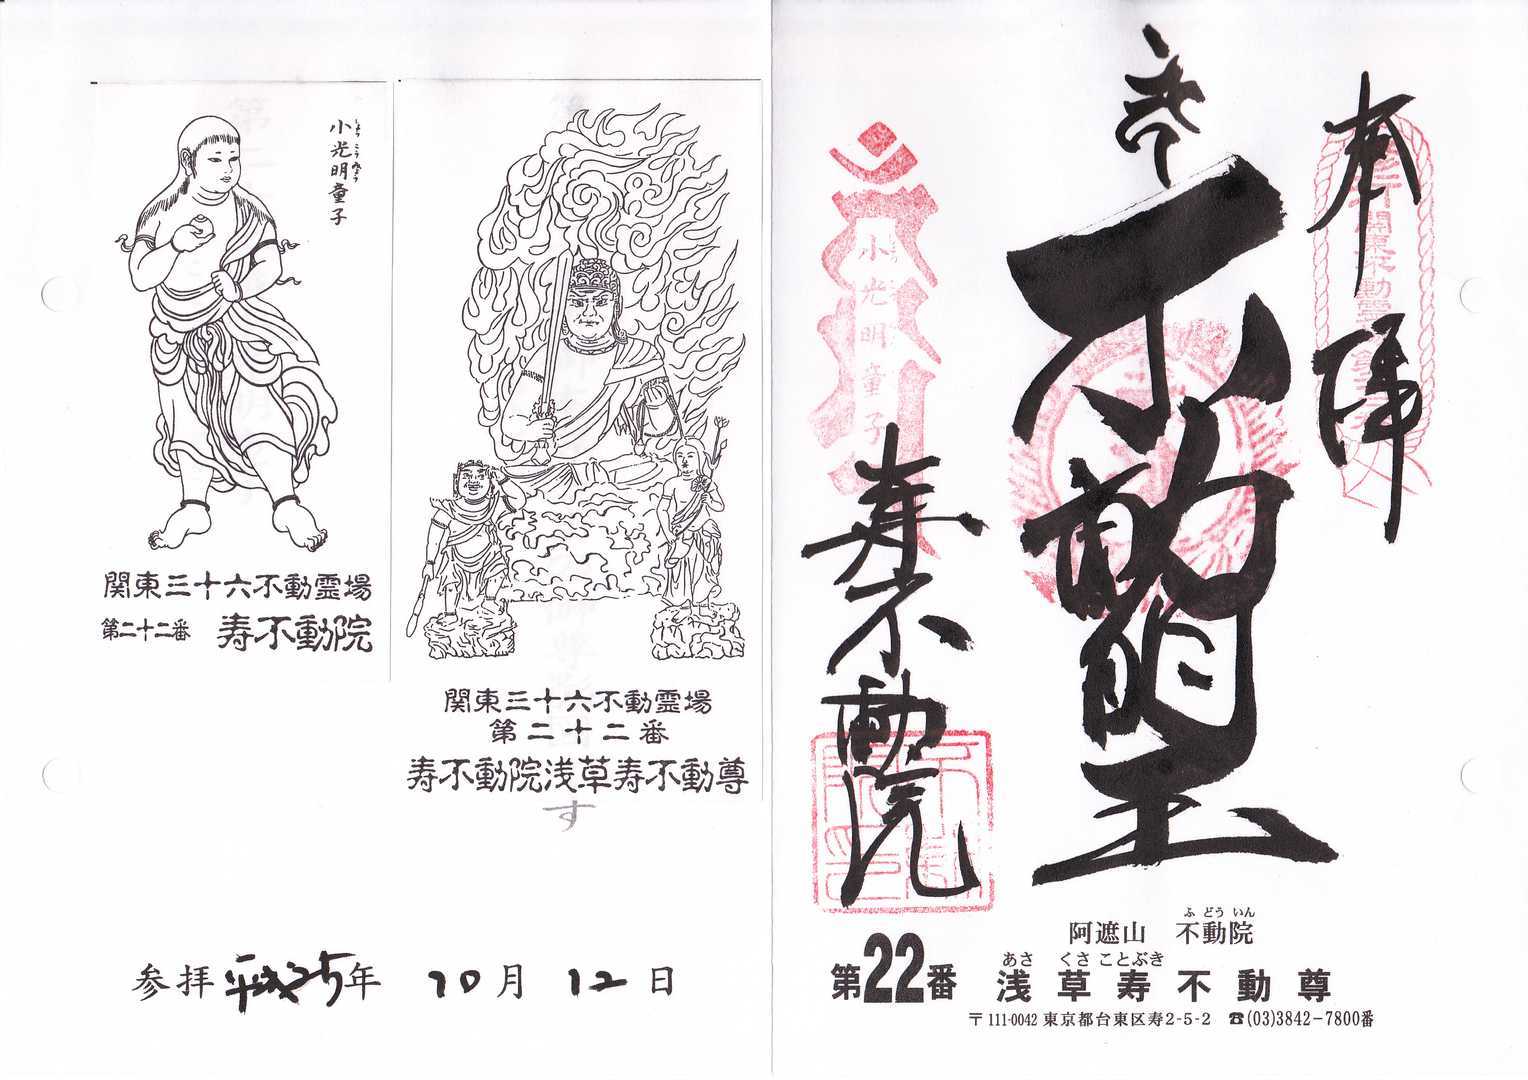 小光明童子
しょうこうみょう
関東三十六不動霊場
第二十二番 寿不動院
関東三十六不動霊場
第二十二番
寿不動院浅草寿不動尊
す
参拝 平成25年 10月 12日
奉拝
不動明王
小光明童子
寿不動院
阿遮山 不動院
ふどういん
あさくさことぶき
第22番 浅草寿不動尊
〒111-0042 東京都台東区寿2-5-2 ☎(03)3842-7800番